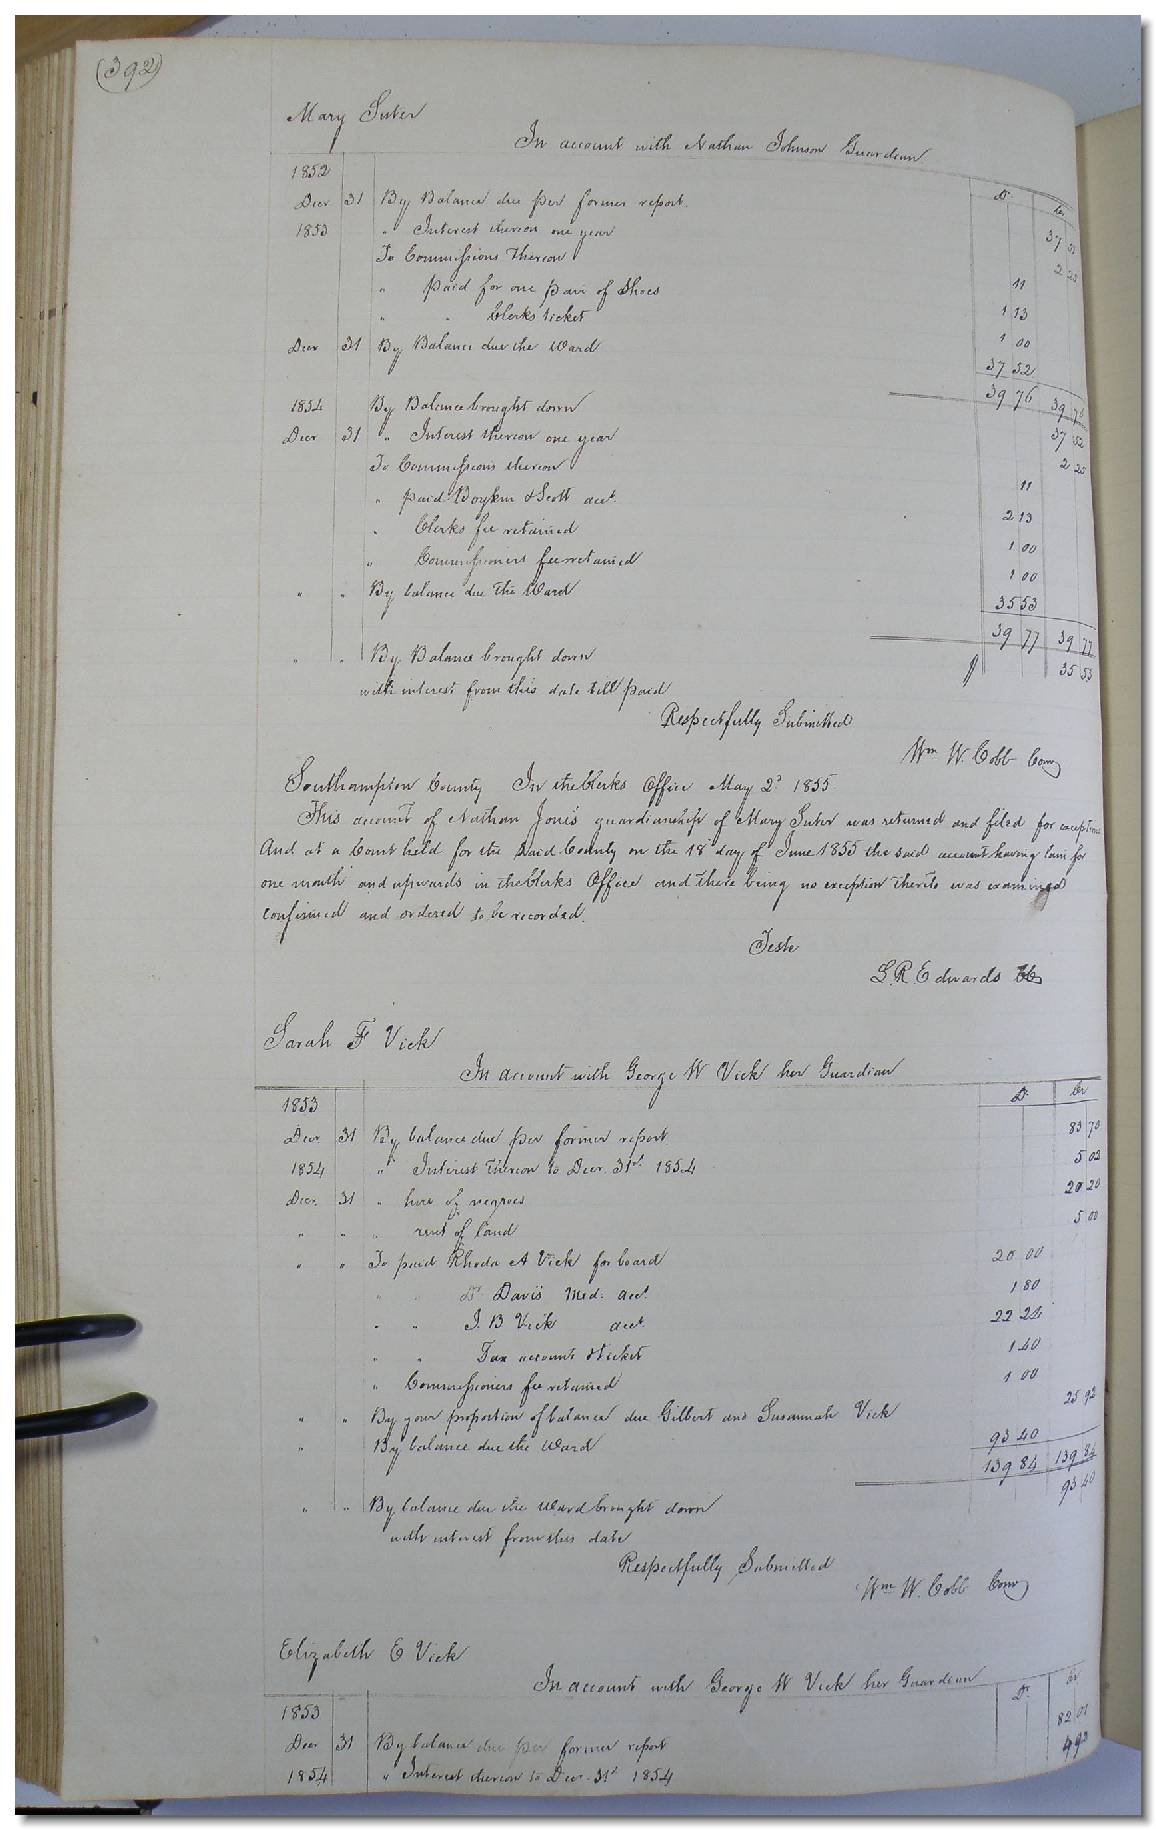 (392)
Mary Suter
In account with Nathan Johnson Guardian
Dr. Cr
1852
Decr 31 By Balance due per former report. 37 51
1853 " Interest thereon one year 2 25
To Commissions thereon 11
" paid for one pair of shoes 1 13
" " Clerks ticket 1 00
Decr 31 By Balance due the Ward 37 52
39 76 39 76
1854 By Balance brought down 37 52
Decr 31 " Interest thereon one year 2 25
To Commissions thereon 11
" paid Boykin & Scott acct. 2 13
" Clerks fee retained 1 00
" Commissioners fee retained 1 00
" " By balance due the Ward 35 53
39 77 39 77
" " By Balance brought down 35 53
with interest from this date till paid
Respectfully Submitted
Wm W. Cobb Comr
Southampton County In the Clerks Office May 2d 1855
This account of Nathan Jones guardianship of Mary Suter was returned and filed for exceptions
And at a Court held for the said County on the 18th day of June 1855 the said account having lain for
one month and upwards in the Clerks Office and there being no exception thereto was examined
confirmed and ordered to be recorded.
Teste
L. R. Edwards CC
Sarah F Vick
In account with George W Vick her Guardian
Dr. Cr
1853
Decr 31 By balance due per former report 83 70
1854 " Interest thereon to Decr. 31st 1854 5 02
Decr. 31 " hire of negroes 20 20
" " " rent of land 5 00
" " To paid Rhoda A Vick for board 20 00
" " Dr. Davis Med: acct. 1 80
" " J. B Vick acct. 22 24
" " Tax account & ticket 1 40
" Commissioners fee retained 1 00
" " By your proportion of balance due Gilbert and Susannah Vick 25 92
" By balance due the Ward 93 40
139 84 139 84
" " By balance due the Ward brought down 93 40
with interest from this date
Respectfully Submitted
Wm W. Cobb Comr
Elizabeth E Vick
In account with George W Vick her Guardian
Dr. Cr
1853
Decr 31 By balance due per former report 82 01
1854 " Interest thereon to Decr. 31st 1854 4 92